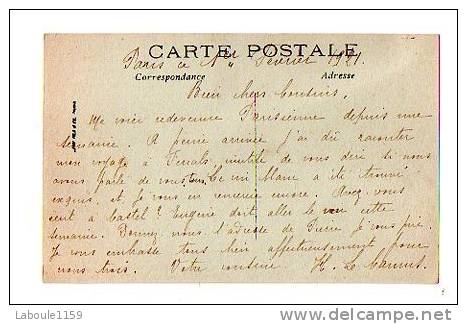 CARTE POSTALE
Paris ce Février 1921.
Correspondance Adresse
Bien chers Cousins,
Me voici redevenue Parisienne depuis une
semaine. A peine arrivée j'ai dû raconter
mon voyage à Ferrals inutile de vous dire si nous
avons parlé de vous tous. Le vin blanc a été trouvé
exquis et je vous en remercie encore. Avez vous
écrit à Castel? Eugénie doit aller le voir cette
semaine. Donnez nous l'adresse de Pierre je vous prie.
Je vous embrasse tous bien affectueusement pour
nous trois. Votre cousine H. Le Camus.
Laboule1159
delcampe.net